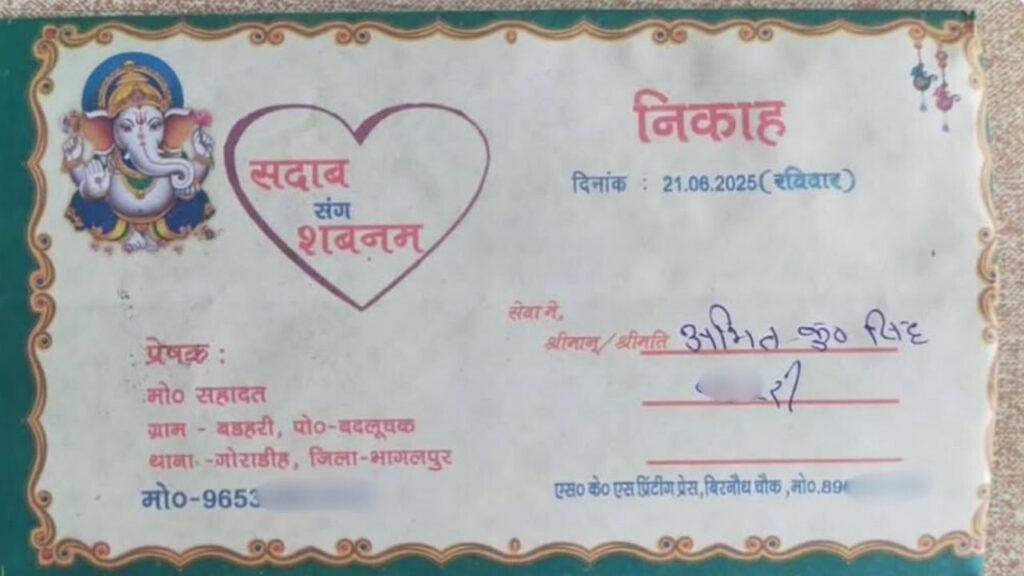 सदाब
संग
शबनम
निकाह
दिनांक : 21.06.2025(रविवार)
प्रेषक :
मो० सहादत
ग्राम - बडहरी, पो०-बदलूचक
थाना -गोराडीह, जिला-भागलपुर
मो०-9653
सेवा में,
श्रीमान्/श्रीमति अमित कु० सिंह
एस० के० एस प्रिंटींग प्रेस,बिरनौध चौक,मो०.89